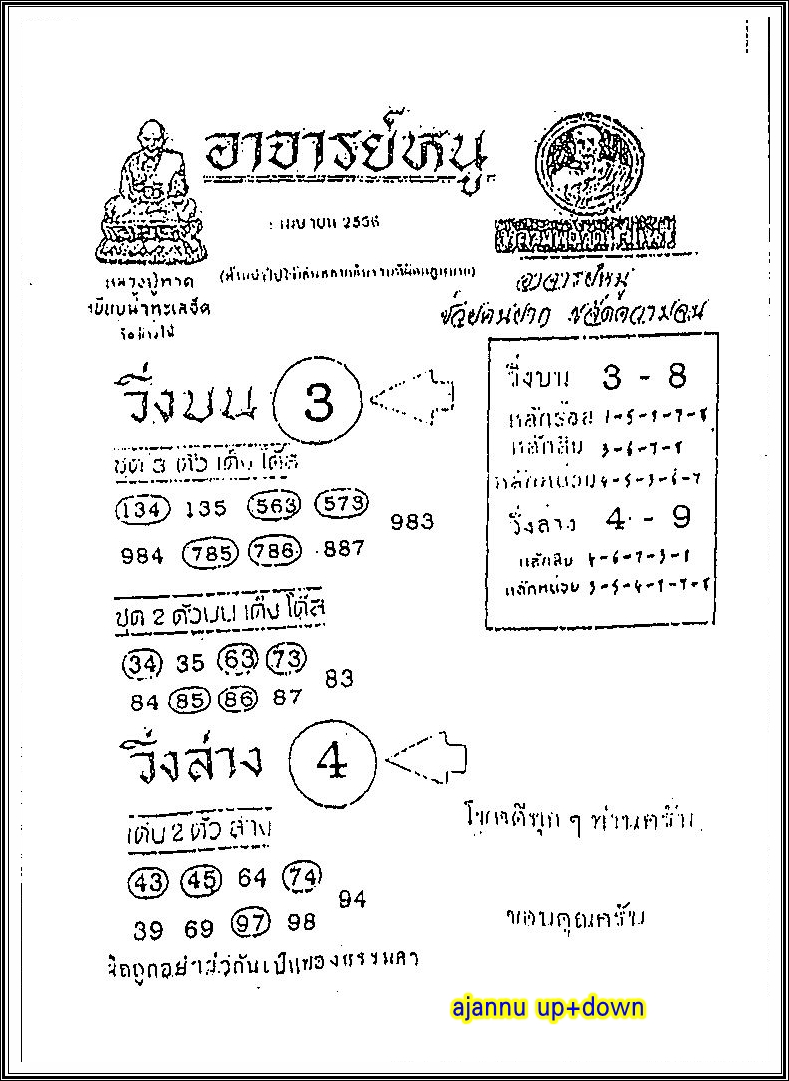 อาจารย์หนู
เมษายน 2556
หลวงปู่ทวด
เหยียบน้ำทะเลจืด
วัดช้างให้
อาจารย์หนู
ช่วยคนยาก ขจัดความจน
วิ่งบน 3
ชุด 3 ตัว เต็ง โต๊ส
134 135 563 573
983
984 785 786 887
ชุด 2 ตัวบน เต็ง โต๊ส
34 35 63 73
83
84 85 86 87
วิ่งล่าง 4
เด่น 2 ตัว ล่าง
43 45 64 74
94
39 69 97 98
ผิดถูกอย่าว่ากันเป็นของธรรมดา
วิ่งบน 3 - 8
หลักร้อย
หลักสิบ 3-6-7-8
หลักหน่วย 4-5-3-6-7
วิ่งล่าง 4 - 9
หลักสิบ
หลักหน่วย
โชคดีทุก ๆ ท่านครับ
ขอบคุณครับ
ajannu up+down